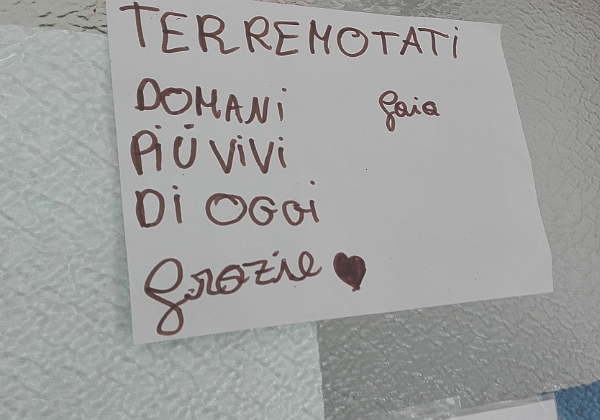 TERREMOTATI
DOMANI
Gaia
PIÙ VIVI
DI OGGI
Grazie